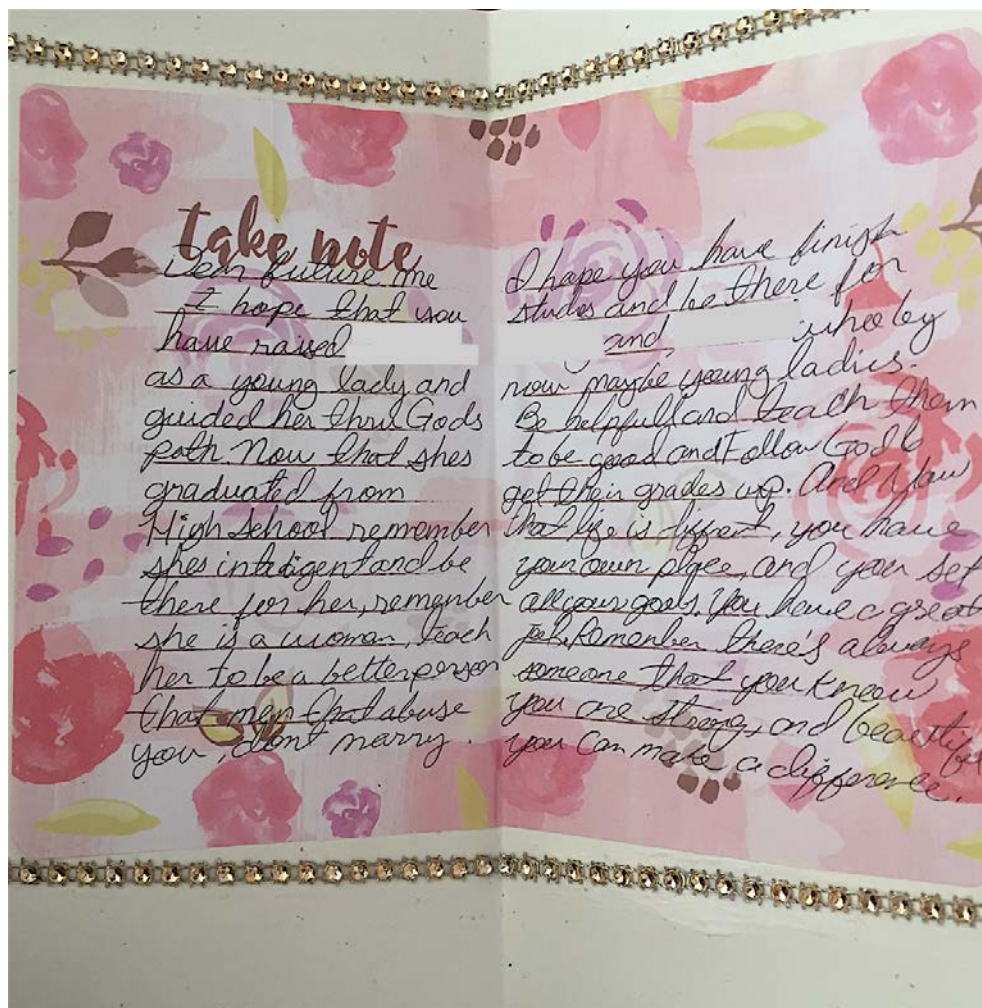 take note
Dear future me
I hope that you
have raised
as a young lady and
guided her thru Gods
path. Now that shes
graduated from
High school remember
shes inteligent and be
there for her, remember
she is a woman, teach
her to be a better person
that men that abuse
you, dont marry.
I hope you have finish
studies and be there for
and who by
now maybe young ladies.
Be helpfull and teach them
to be good and Follow God &
get their grades up. And
that life is diffrent, you have
your own place, and you set
all your goals. You have a great
job. Remember there's always
someone that you know
you are strong, and beautiful
you can make a difference.